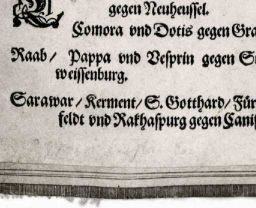 gegen Neuheussel.
Comora vnd Dotis gegen Gra
Raab/ Pappa vnd Vesprin gegen S
weissenburg.
Sarawar/ Kerment/ S. Gotthard/ Für
feldt vnd Rakhaspurg gegen Canis